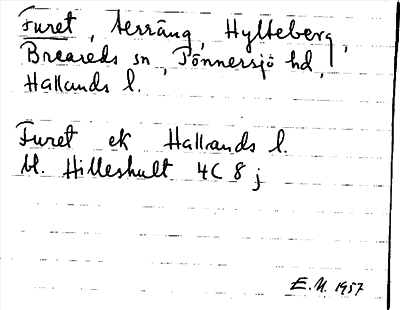 Furet, terräng, Hylteberg,
Breareds sn, Tönnersjö hd,
Hallands l.
Furet ek Hallands l.
bl. Hilleshult 4C 8 j
E.M. 1957